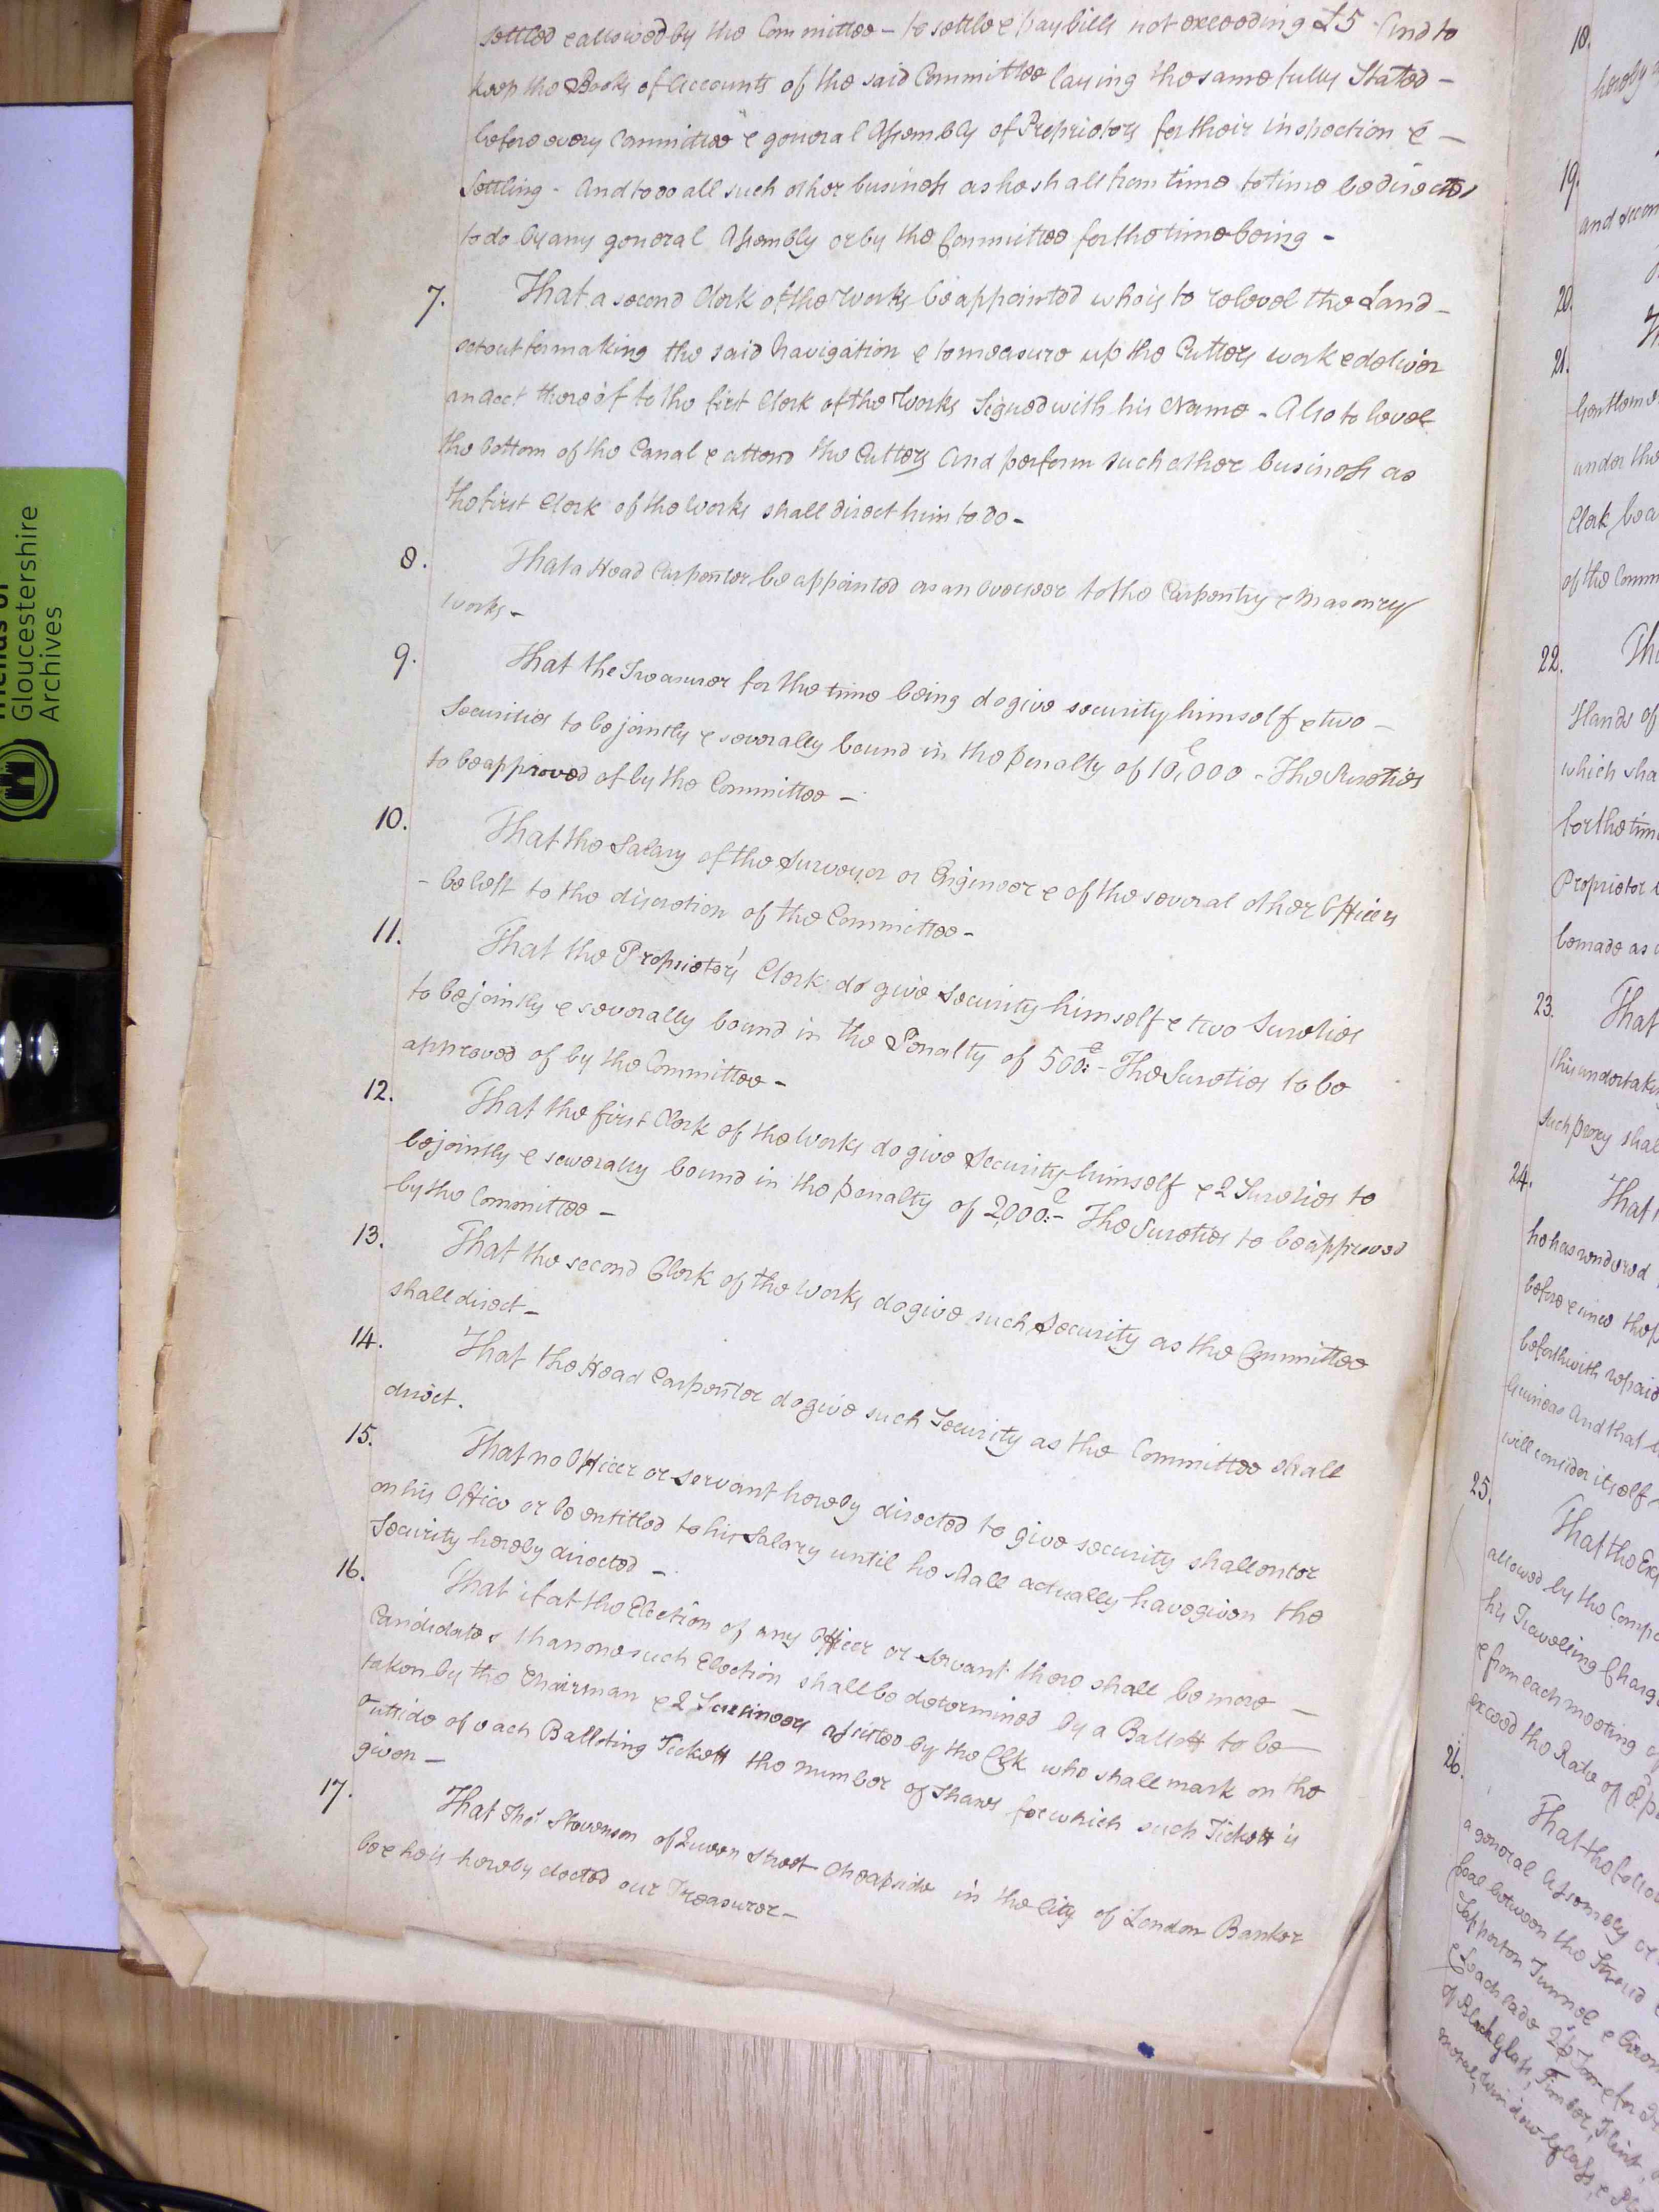 settled & allowed by the Committee – to settle & pay bills not exceeding £5 – And to
keep the Books of Accounts of the said Committee laying the same fully Stated –
before every Committee & general Assembly of Proprietors for their inspection & –
Settling – And to do all such other business as he shall from time to time be directed
to do by any general Assembly or by the Committee for the time being –
7. That a second Clerk of the Works be appointed who is to relevel the Land –
set out for making the said Navigation & to measure up the Cutters work & deliver
an Acct thereof to the first Clerk of the Works Signed with his Name – Also to level
the bottom of the Canal & attend the Cutters And perform such other business as
the first Clerk of the Works shall direct him to do –
8. That a Head Carpenter be appointed as an Overseer to the Carpentry & Masonry
works –
9. That the Treasurer for the time being do give security himself & two –
Securities to be jointly & severally bound in the penalty of 10,000£ – The Sureties
to be approved of by the Committee –
10. That the Salary of the Surveyor or Engineer & of the several other Officers
– be left to the discretion of the Committee –
11. That the Proprietors' Clerk do give Security himself & two Sureties
to be jointly & severally bound in the Penalty of 500£:– The Sureties to be
approved of by the Committee –
12. That the first Clerk of the Works do give Security himself & 2 Sureties to
be jointly & severally bound in the penalty of 2,000£:– The Sureties to be approved
by the Committee –
13. That the second Clerk of the Works do give such Security as the Committee
shall direct –
14. That the Head Carpenter do give such Security as the Committee shall
direct.
15. That no Officer or Servant hereby directed to give security shall enter
on his Office or be entitled to his Salary until he shall actually have given the
Security hereby directed –
16. That if at the Election of any Officer or Servant there shall be more –
Candidates than one such Election shall be determined by a Ballott to be
taken by the Chairman & 2 Scrutineers assisted by the Clk who shall mark on the
outside of each Balloting Tickett the number of Shares for which such Tickett is
given –
17. That Thos Stevenson of Queen Street Cheapside in the City of London Banker
be & he is hereby elected our Treasurer –
Gloucestershire
Archives
18.
hereby
19.
and
20.
21.
Gentlemen
under the
Clerk be
of the Comm
22.
Hands of
which sha
for the time
Proprietor
be made as
23. That
this undertak
Such proxy shal
24. That
he has rendered
before & since the
be forthwith repaid
Guineas And that
will consider itself
25. That the Ex
allowed by the Comp
his Travelling Charg
& from each meeting of
exceed the Rate of
26. That the follow
a general Assembly or
Coal between the Stroud
Sapperton Tunnel & Ciren
& Leachlade
of Black Glass, Timber, Flint,
window Glass &